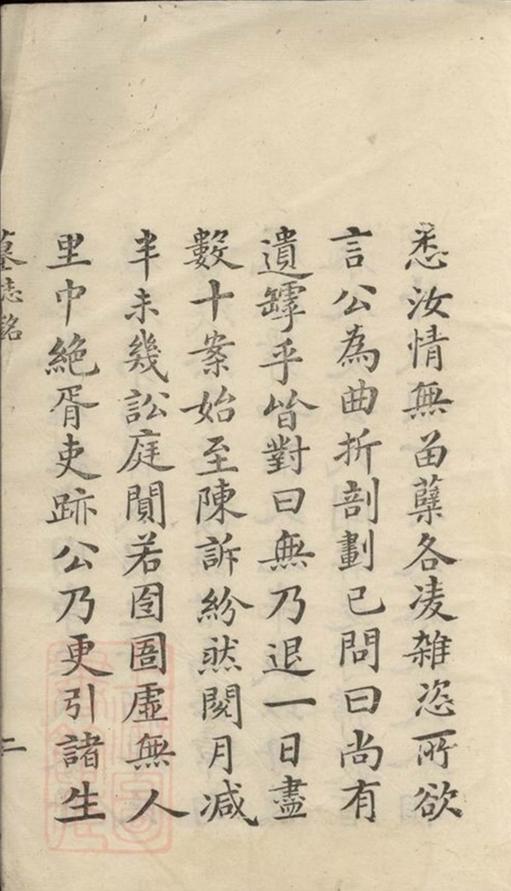 悉汝情無畱蘖各凌雜恣所欲
言公為曲折剖劃已問曰尚有
遺罅乎皆對曰無乃退一日盡
數十案始至陳訴紛然閱月减
半未幾訟庭闃若囹圄虛無人
里中絶胥吏跡公乃更引諸生
墓志銘
二